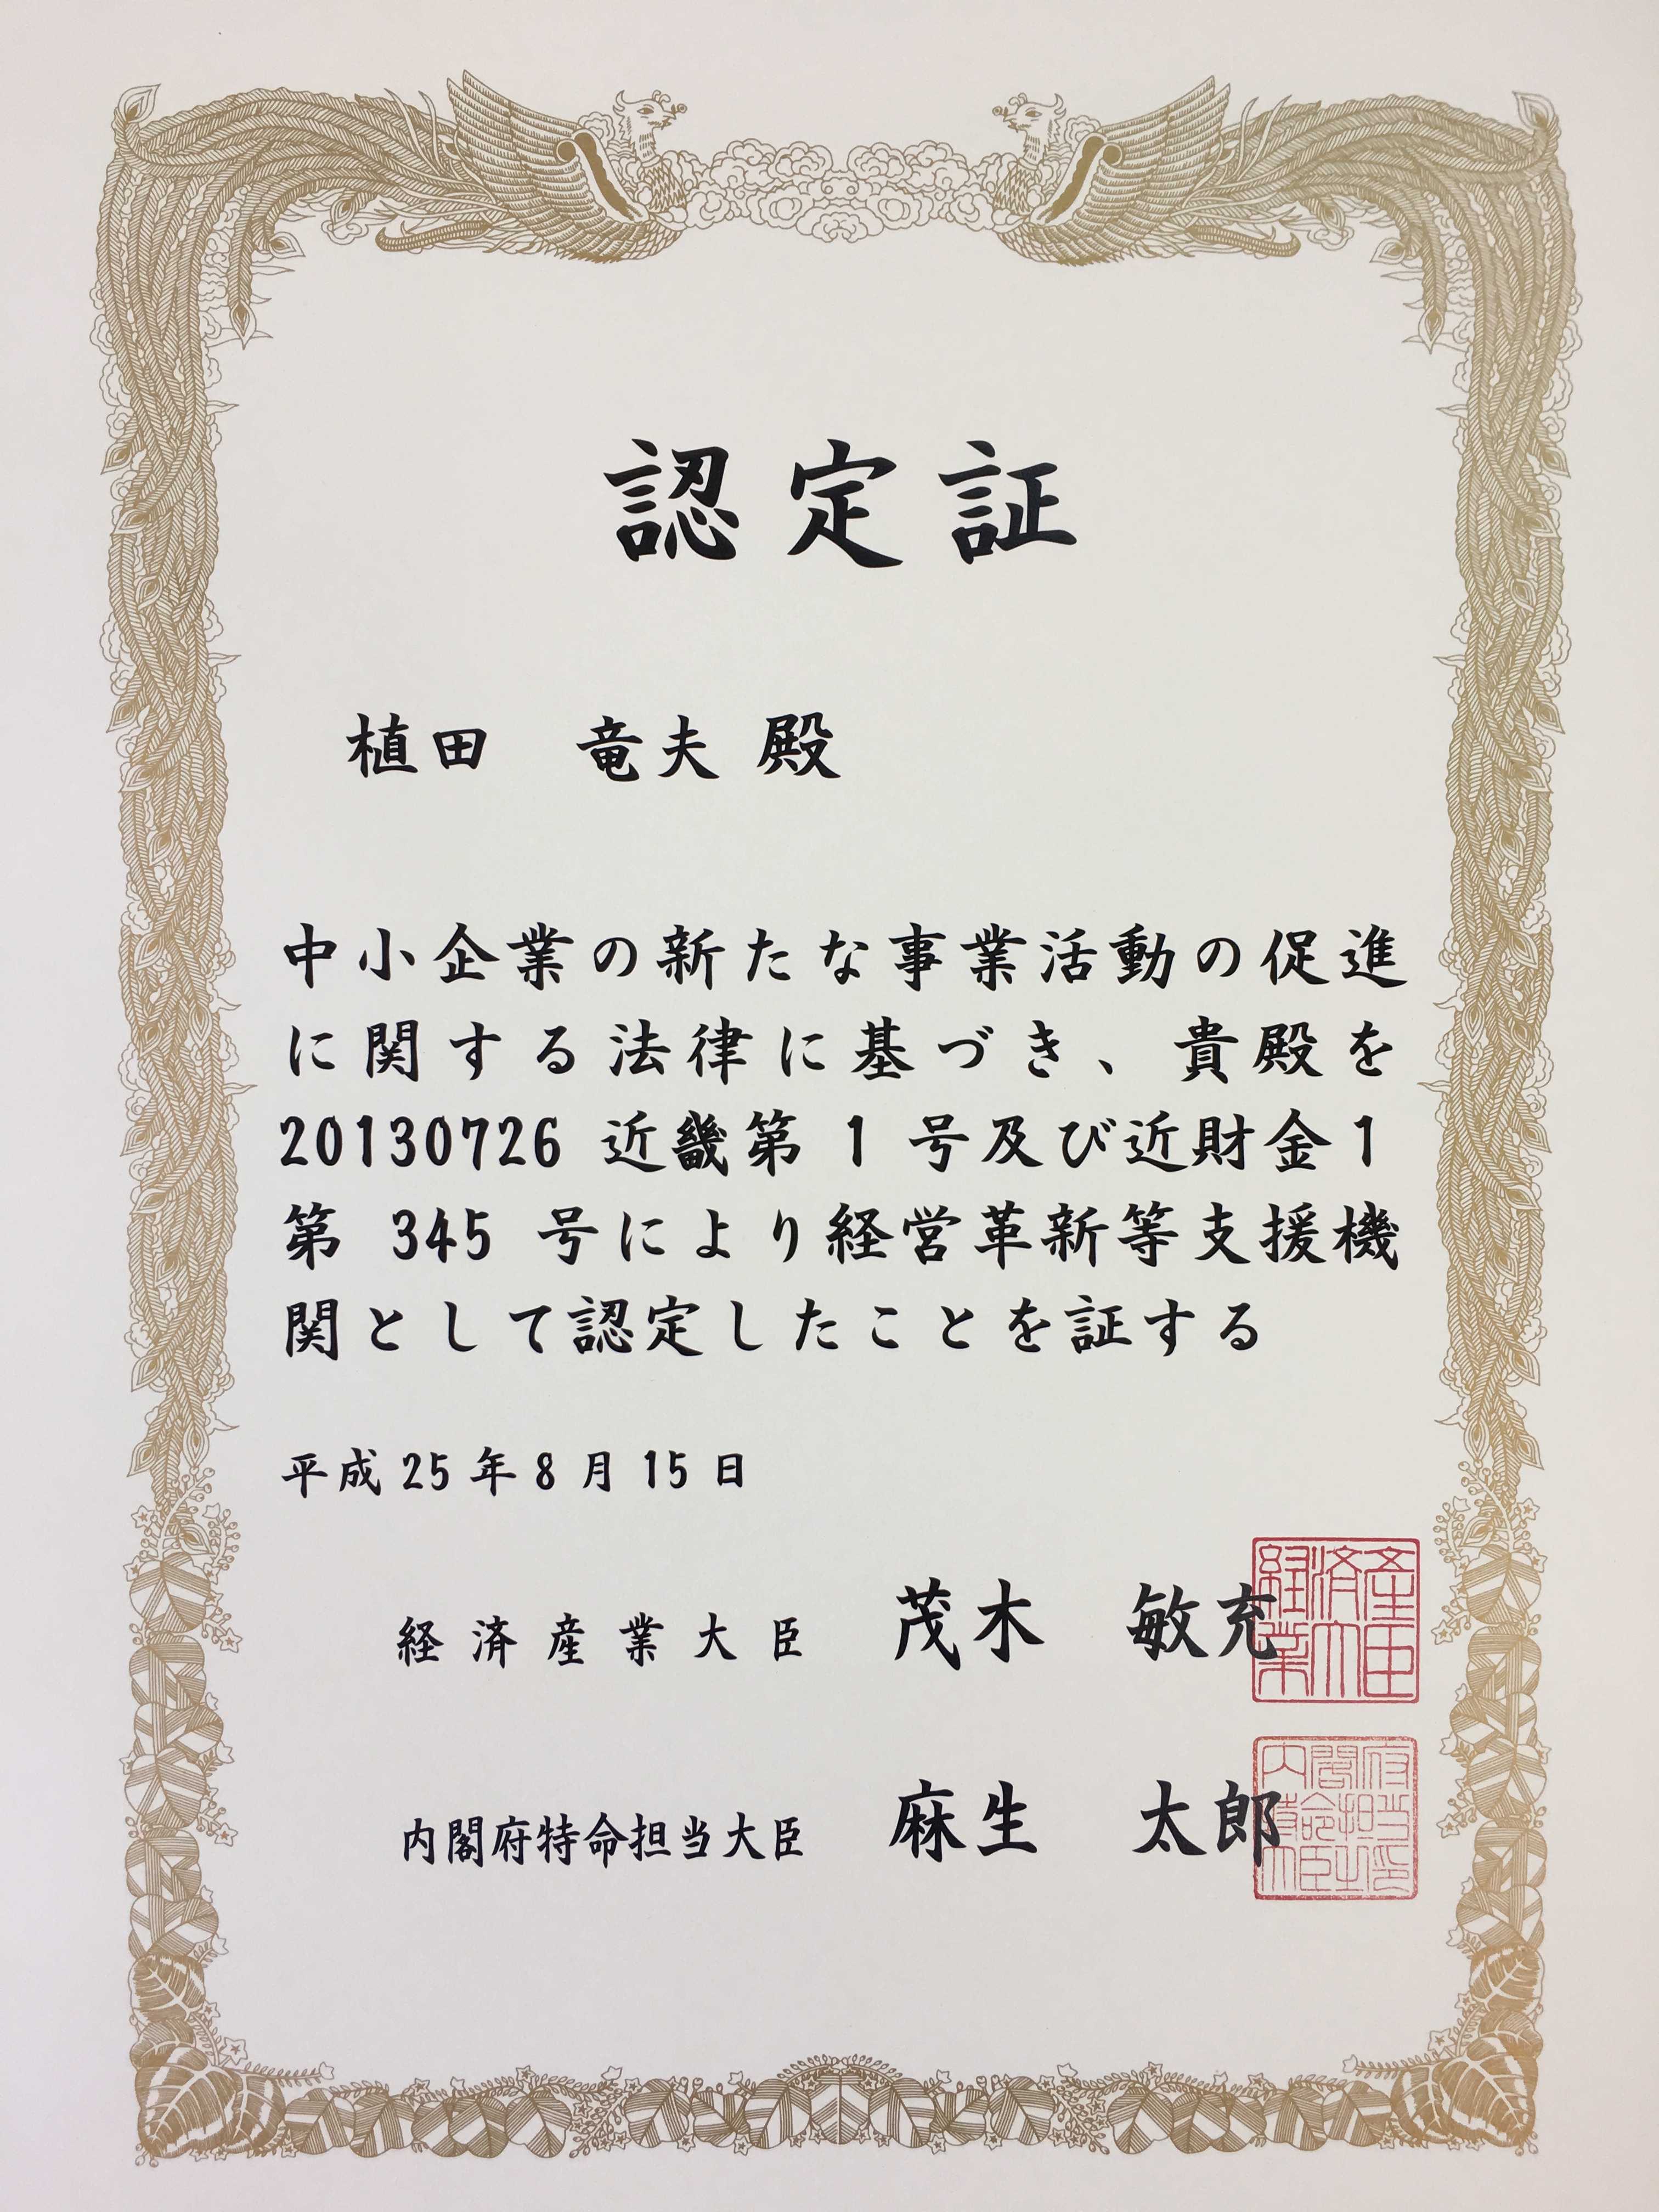 認定証
植田　竜夫 殿
中小企業の新たな事業活動の促進
に関する法律に基づき、貴殿を
20130726 近畿第 1 号及び近財金1
第 345 号により経営革新等支援機
関として認定したことを証する
平成 25 年 8 月 15 日
経済産業大臣　茂木　敏充
内閣府特命担当大臣　麻生　太郎